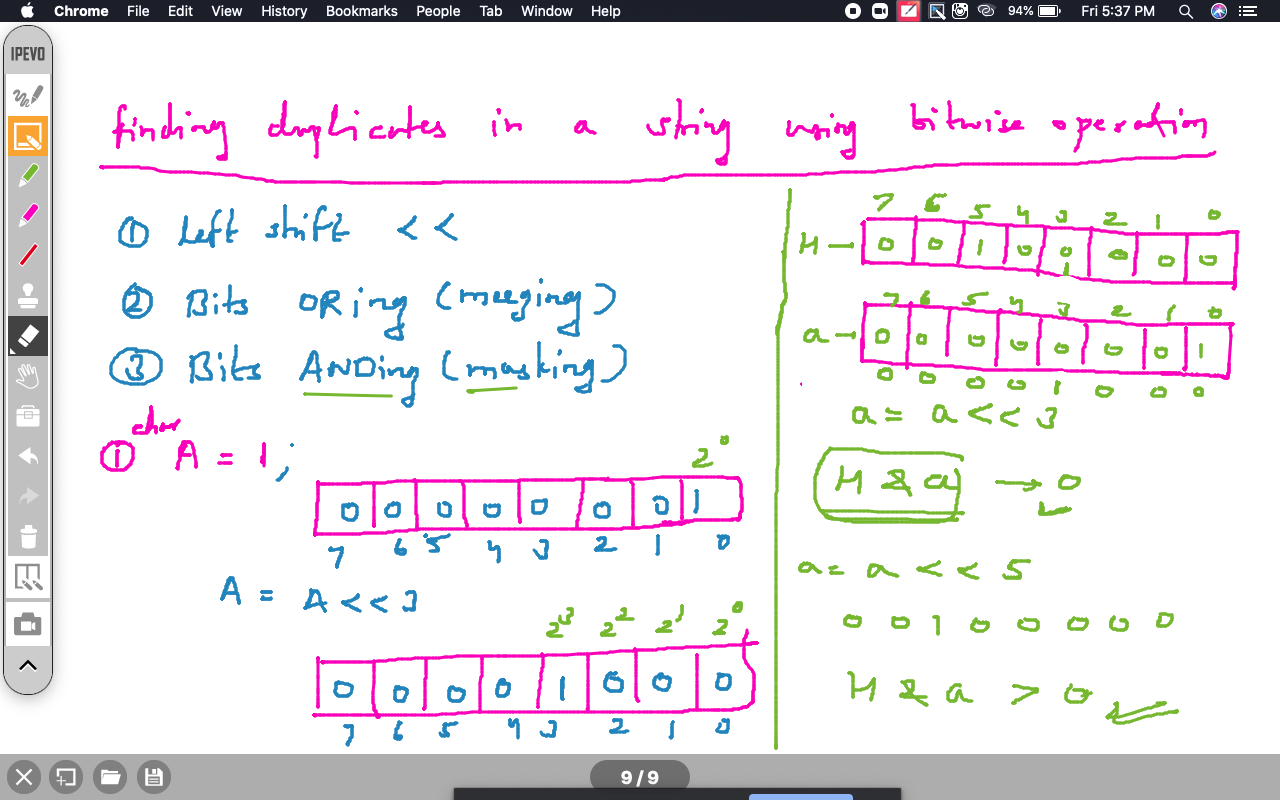 Chrome File Edit View History Bookmarks People Tab Window Help 94% Fri 5:37 PM
IPEVO
finding duplicates in a string using bitwise operation
① Left shift <<
② Bits ORing (merging)
③ Bits ANDing (masking)
char
① A = 1;
2⁰
0 0 0 0 0 0 0 1
7 6 5 4 3 2 1 0
A = A << 3
2³ 2² 2¹ 2⁰
0 0 0 0 1 0 0 0
7 6 5 4 3 2 1 0
7 6 5 4 3 2 1 0
H → 0 0 1 0 0 0 0 0
1
7 6 5 4 3 2 1 0
a → 0 0 0 0 0 0 0 1
0 0 0 0 1 0 0 0
a = a << 3
H & a → 0
a = a << 5
0 0 1 0 0 0 0 0
H & a > 0
9 / 9